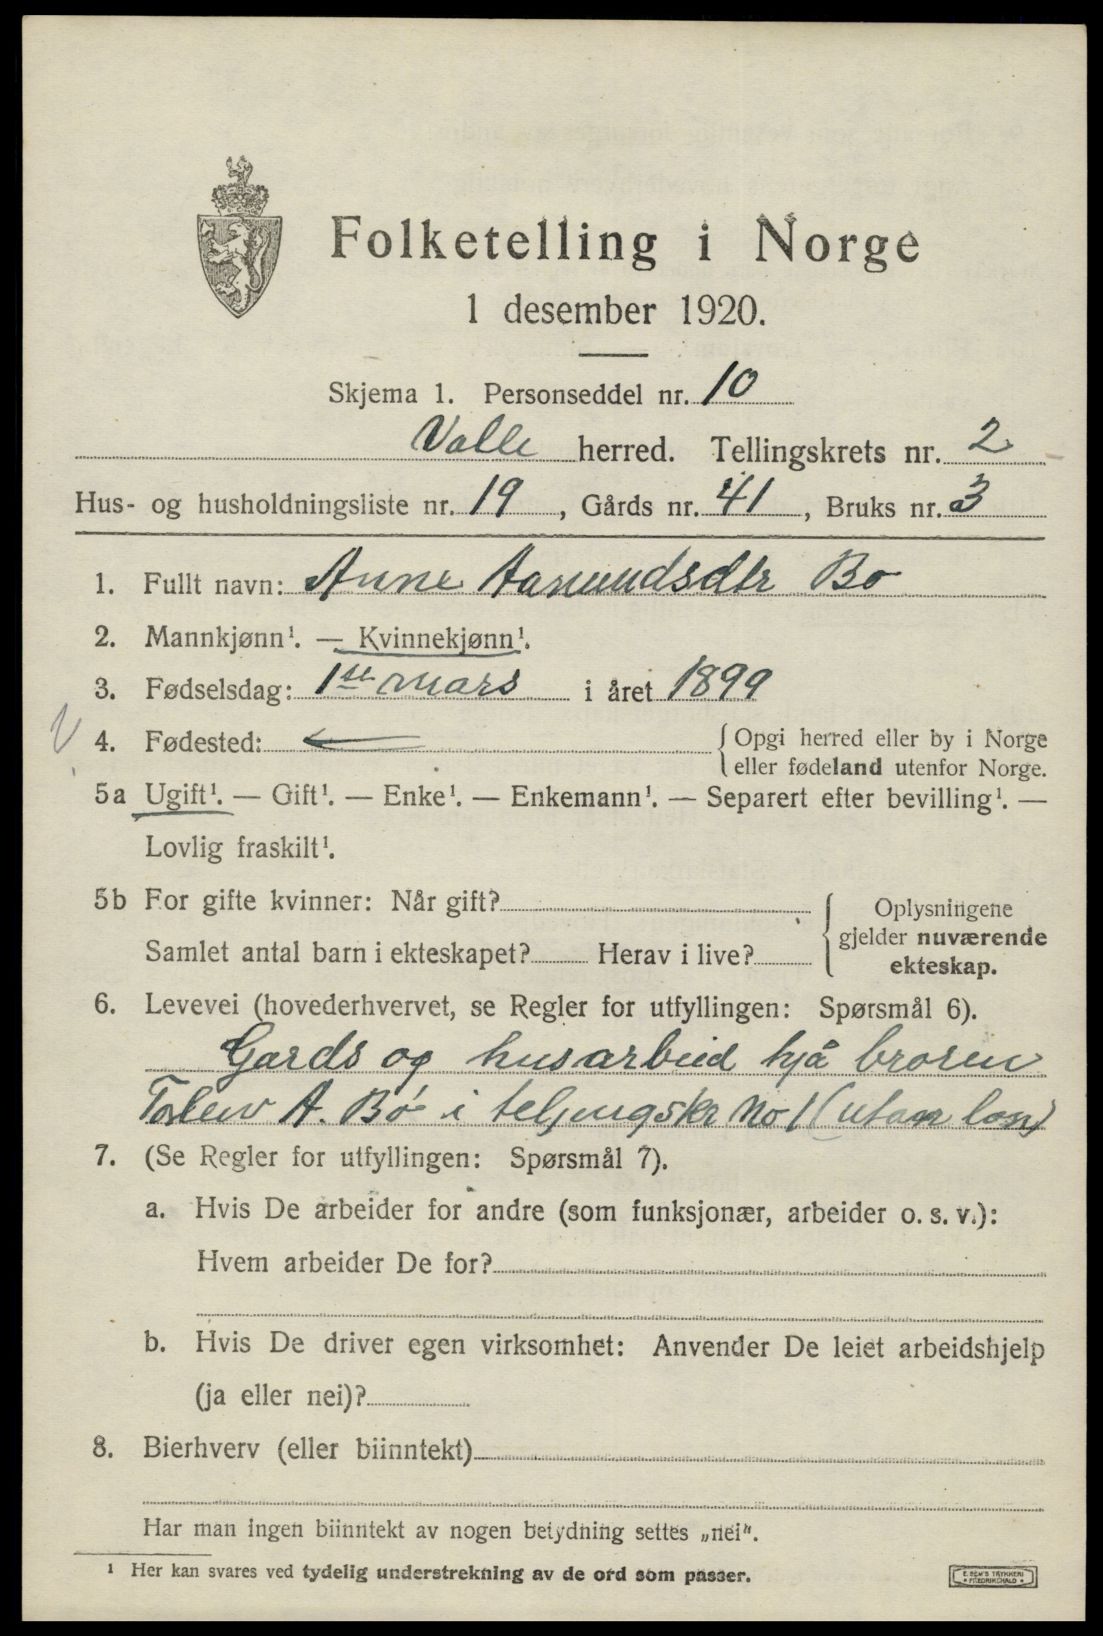 Folketelling i Norge
1 desember 1920.
Skjema 1. Personseddel nr. 10
Valle herred. Tellingskrets nr. 2
Hus- og husholdningsliste nr. 19, Gårds nr. 41, Bruks nr. 3
1. Fullt navn: Anne Aasmundsdtr Bø
2. Mannkjønn¹. — Kvinnekjønn¹.
3. Fødselsdag: 1ste mars i året 1899
V 4. Fødested: { Opgi herred eller by i Norge
eller fødeland utenfor Norge.
5a Ugift¹. — Gift¹. — Enke¹. — Enkemann¹. — Separert efter bevilling¹. —
Lovlig fraskilt¹.
5b For gifte kvinner: Når gift? { Oplysningene
gjelder nuværende
Samlet antal barn i ekteskapet? Herav i live?
ekteskap.
6. Levevei (hovederhvervet, se Regler for utfyllingen: Spørsmål 6).
Gards og husarbeid hjå broren
Tolleiv A. Bø i teljingskr No 1 (utan løn)
7. (Se Regler for utfyllingen: Spørsmål 7).
a. Hvis De arbeider for andre (som funksjonær, arbeider o. s. v.):
Hvem arbeider De for?
b. Hvis De driver egen virksomhet: Anvender De leiet arbeidshjelp
(ja eller nei)?
8. Bierhverv (eller biinntekt)
Har man ingen biinntekt av nogen betydning settes „nei".
¹ Her kan svares ved tydelig understrekning av de ord som passer.
E. SEM'S TRYKKERI
• FREDRIKSHALD •